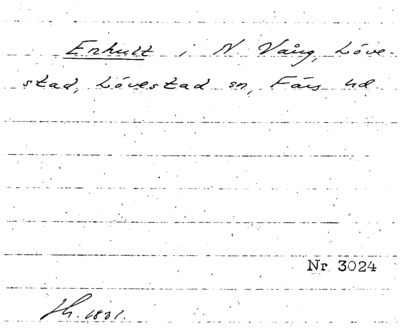 Enhult i N. Vång, Löve-
stad, Lövestad sn, Färs hd
Nr 3024
1801.